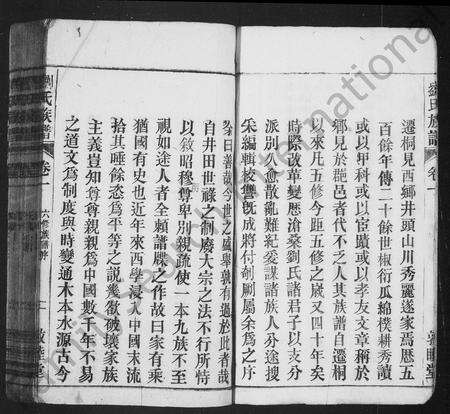 劉氏族譜
卷一
遷桐見西鄉井頭山川秀麗遂家焉歷五
百餘年傳二十餘世椒衍瓜綿樸耕秀讀
或以甲科或以宦蹟或以孝友文章稱於
鄉見於郡邑者代不乏人其族譜自遷桐
以來凡五修今距五修之歲又四十年矣
時際改革變應滄桑劉氏諸君子以支分
派別久愈散亂難紀爰謀諸族人分途搜
采編輯校讐既成將付剞劂屬余為之序
余曰善哉今世之風舉孰有過於此者哉
自井田世祿之制廢大宗之法不行所恃
以敘昭穆尊卑別親疏使一本九族不至
視如途人者全賴譜牒之作故曰家有乘
猶國有史也近年來西學浸入中國末流
拾其唾餘恣為平等之說幾欲破壞家族
主義豈知尊尊親親為中國數千年不易
之道文為制度與時變通木本水源古今
劉氏族譜
卷一
六修族譜序
敦睦堂